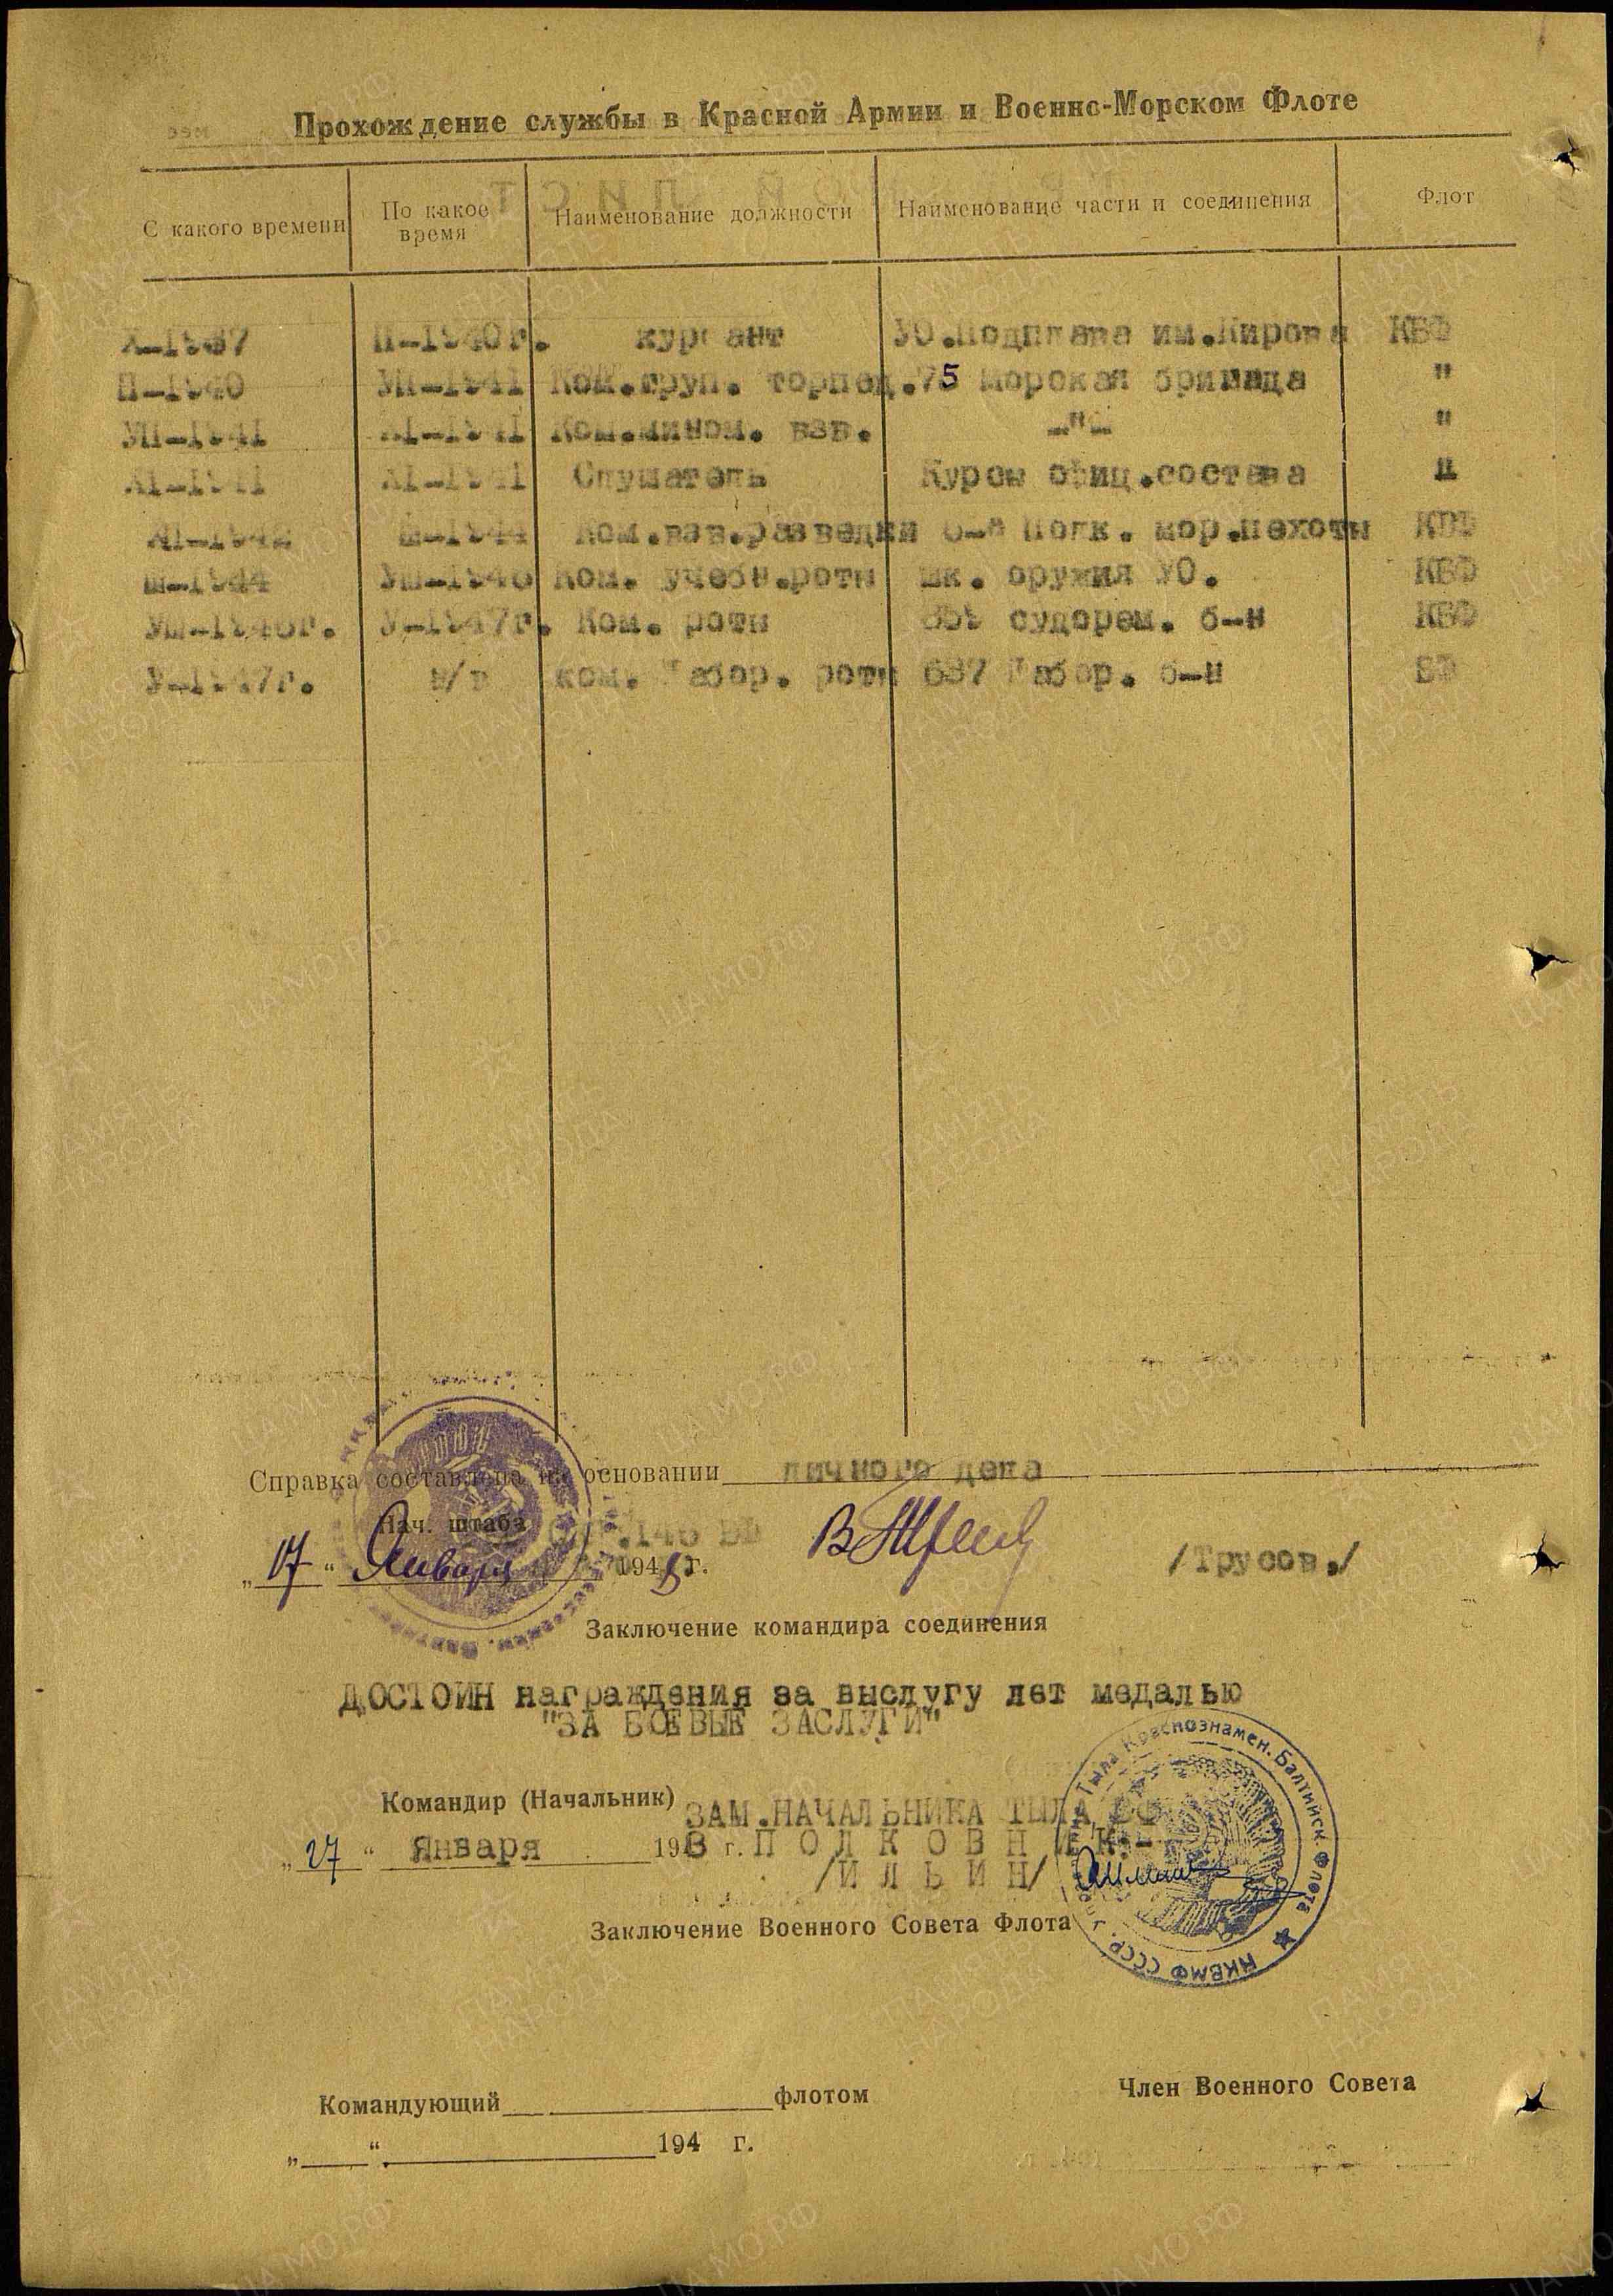 Прохождение службы в Красной Армии и Военнс-Морском Флоте
С какого времени По какое время Наименование должности Наименование части и соединения Флот
X-1937 П-1940г. курсант УО.Подплава им.Кирова КБФ
П-1940 УП-1941 Ком.груп. торпед. 75 морская бригада "
УП-1941 XI-1941 Ком.мином. взв. -"- "
XI-1941 XI-1941 Слушатель Курсы офиц.состава "
XI-1942 Ш-1944 Ком.взв.разведки 6-й Полк. мор.пехоты КБФ
Ш-1944 УШ-1946 Ком. учебн.роты шк. оружия УО. КБФ
УШ-1946г. У-1947г. Ком. роты 359 судорем. б-н КБФ
У-1947г. н/в ком. рабор. роты 687 рабор. б-н
Справка составлена на основании личного дела
Нач. штаба 146
„17“ Января 1948 г. /Трусов./
Заключение командира соединения
ДОСТОИН награждения за выслугу лет медалью
"ЗА БОЕВЫЕ ЗАСЛУГИ"
Командир (Начальник) ЗАМ.НАЧАЛЬНИКА ТЫЛА
„27“ Января 1948 г. ПОЛКОВНИК-
/ИЛЬИН/
Тыла Краснознамен. Балтийск. Флота ★ НКВМФ СССР
Заключение Военного Совета Флота
Командующий флотом
Член Военного Совета
„ “ 194 г.